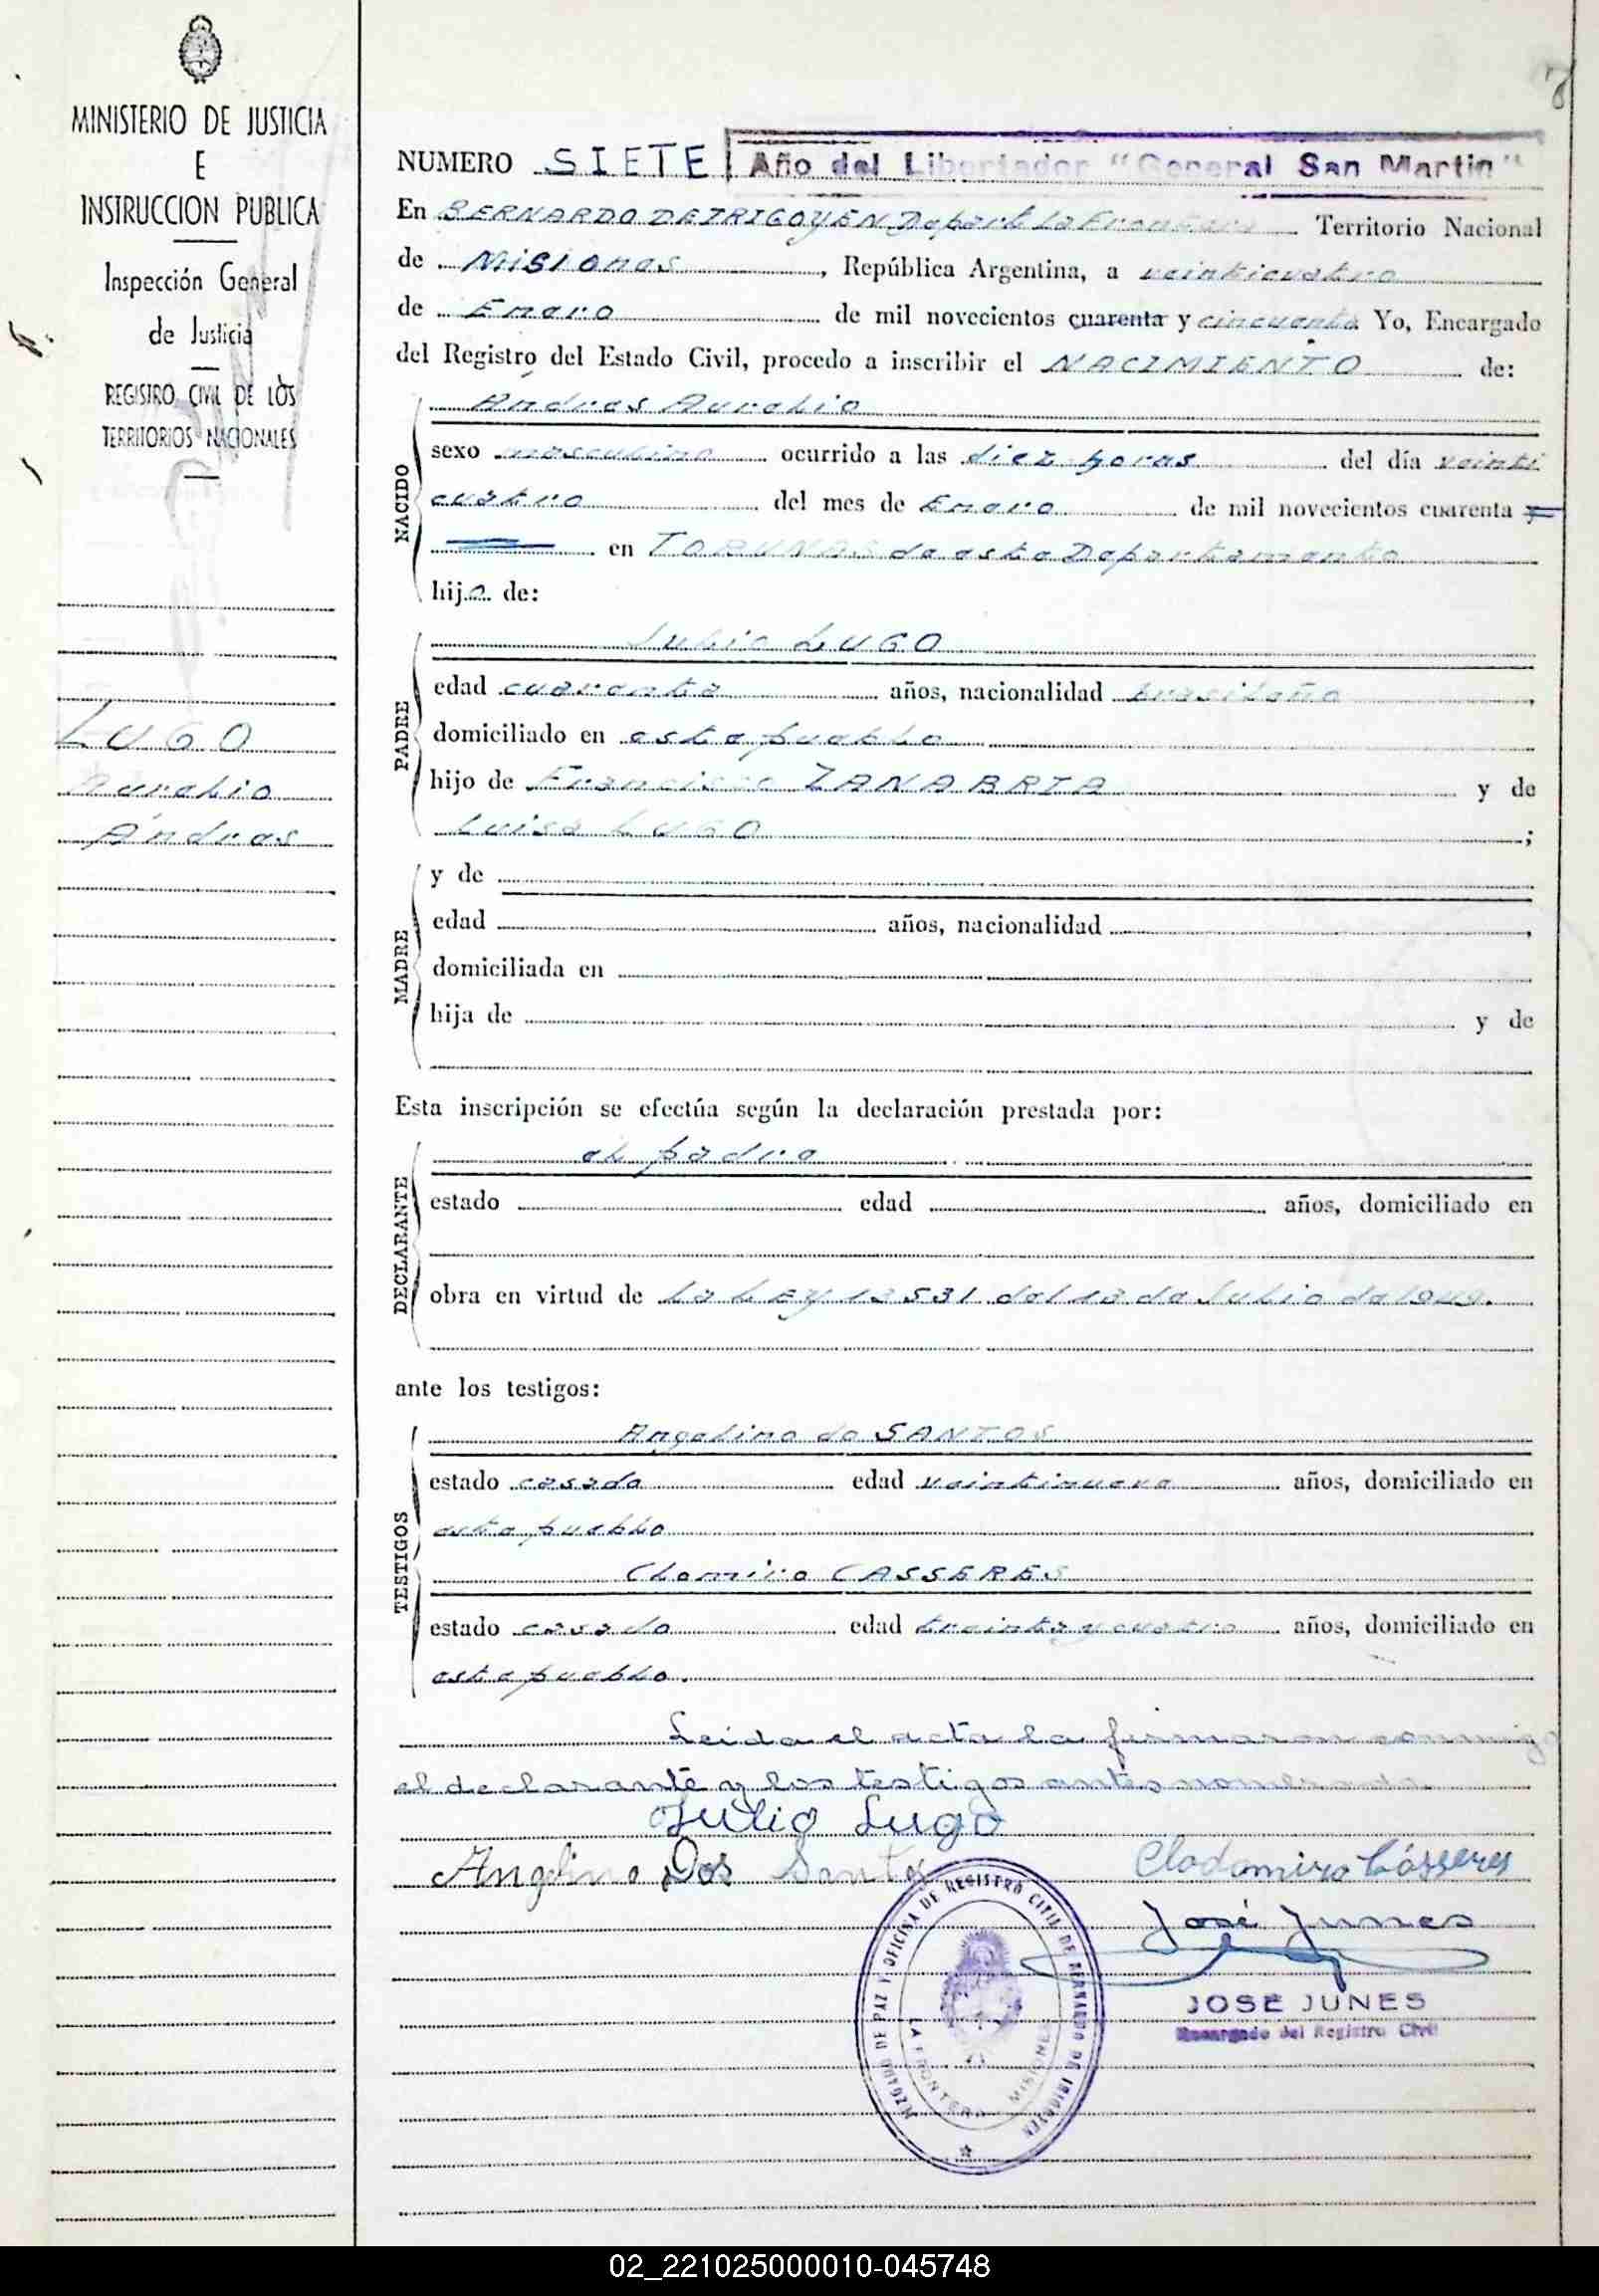 MINISTERIO DE JUSTICIA
E
INSTRUCCION PUBLICA
Inspección General
de Justicia
REGISTRO CIVIL DE LOS
TERRITORIOS NACIONALES
LUGO
Aurelio
Andres
NUMERO SIETE Año del Libertador "General San Martin"
En BERNARDO DE IRIGOYEN Depart. La Frontera Territorio Nacional
de Misiones, República Argentina, a veinticuatro
de Enero de mil novecientos cuarenta y cincuenta Yo, Encargado
del Registro del Estado Civil, procedo a inscribir el NACIMIENTO de:
NACIDO
Andres Aurelio
sexo masculino ocurrido a las diez horas del día veinti
cuatro del mes de Enero de mil novecientos cuarenta y
en TORUNAS de este Departamento
hijo de:
PADRE
Julio LUGO
edad cuarenta años, nacionalidad brasileña
domiciliado en este pueblo
hijo de Francisco ZANABRIA y de
Luisa LUGO ;
MADRE
y de
edad años, nacionalidad ,
domiciliada en
hija de y de
Esta inscripción se efectúa según la declaración prestada por:
DECLARANTE
el padre
estado edad años, domiciliado en
obra en virtud de la LEY 13531 del 13 de Julio de 1949.
ante los testigos:
TESTIGOS
Angelino do SANTOS
estado casado edad veintinueve años, domiciliado en
este pueblo
Clomiro CASSERES
estado casado edad treinta y cuatro años, domiciliado en
este pueblo.
Leida el acta la firmaron conmigo
el declarante y los testigos antes nombrado
Julio Lugo
Angelino Dos Santos Clodomiro Cásseres
José Junes
JOSE JUNES
Encargado del Registro Civil
JUZGADO DE PAZ Y OFICINA DE REGISTRO CIVIL DE BERNARDO DE IRIGOYEN
LA FRONTERA MISIONES
02_221025000010-045748